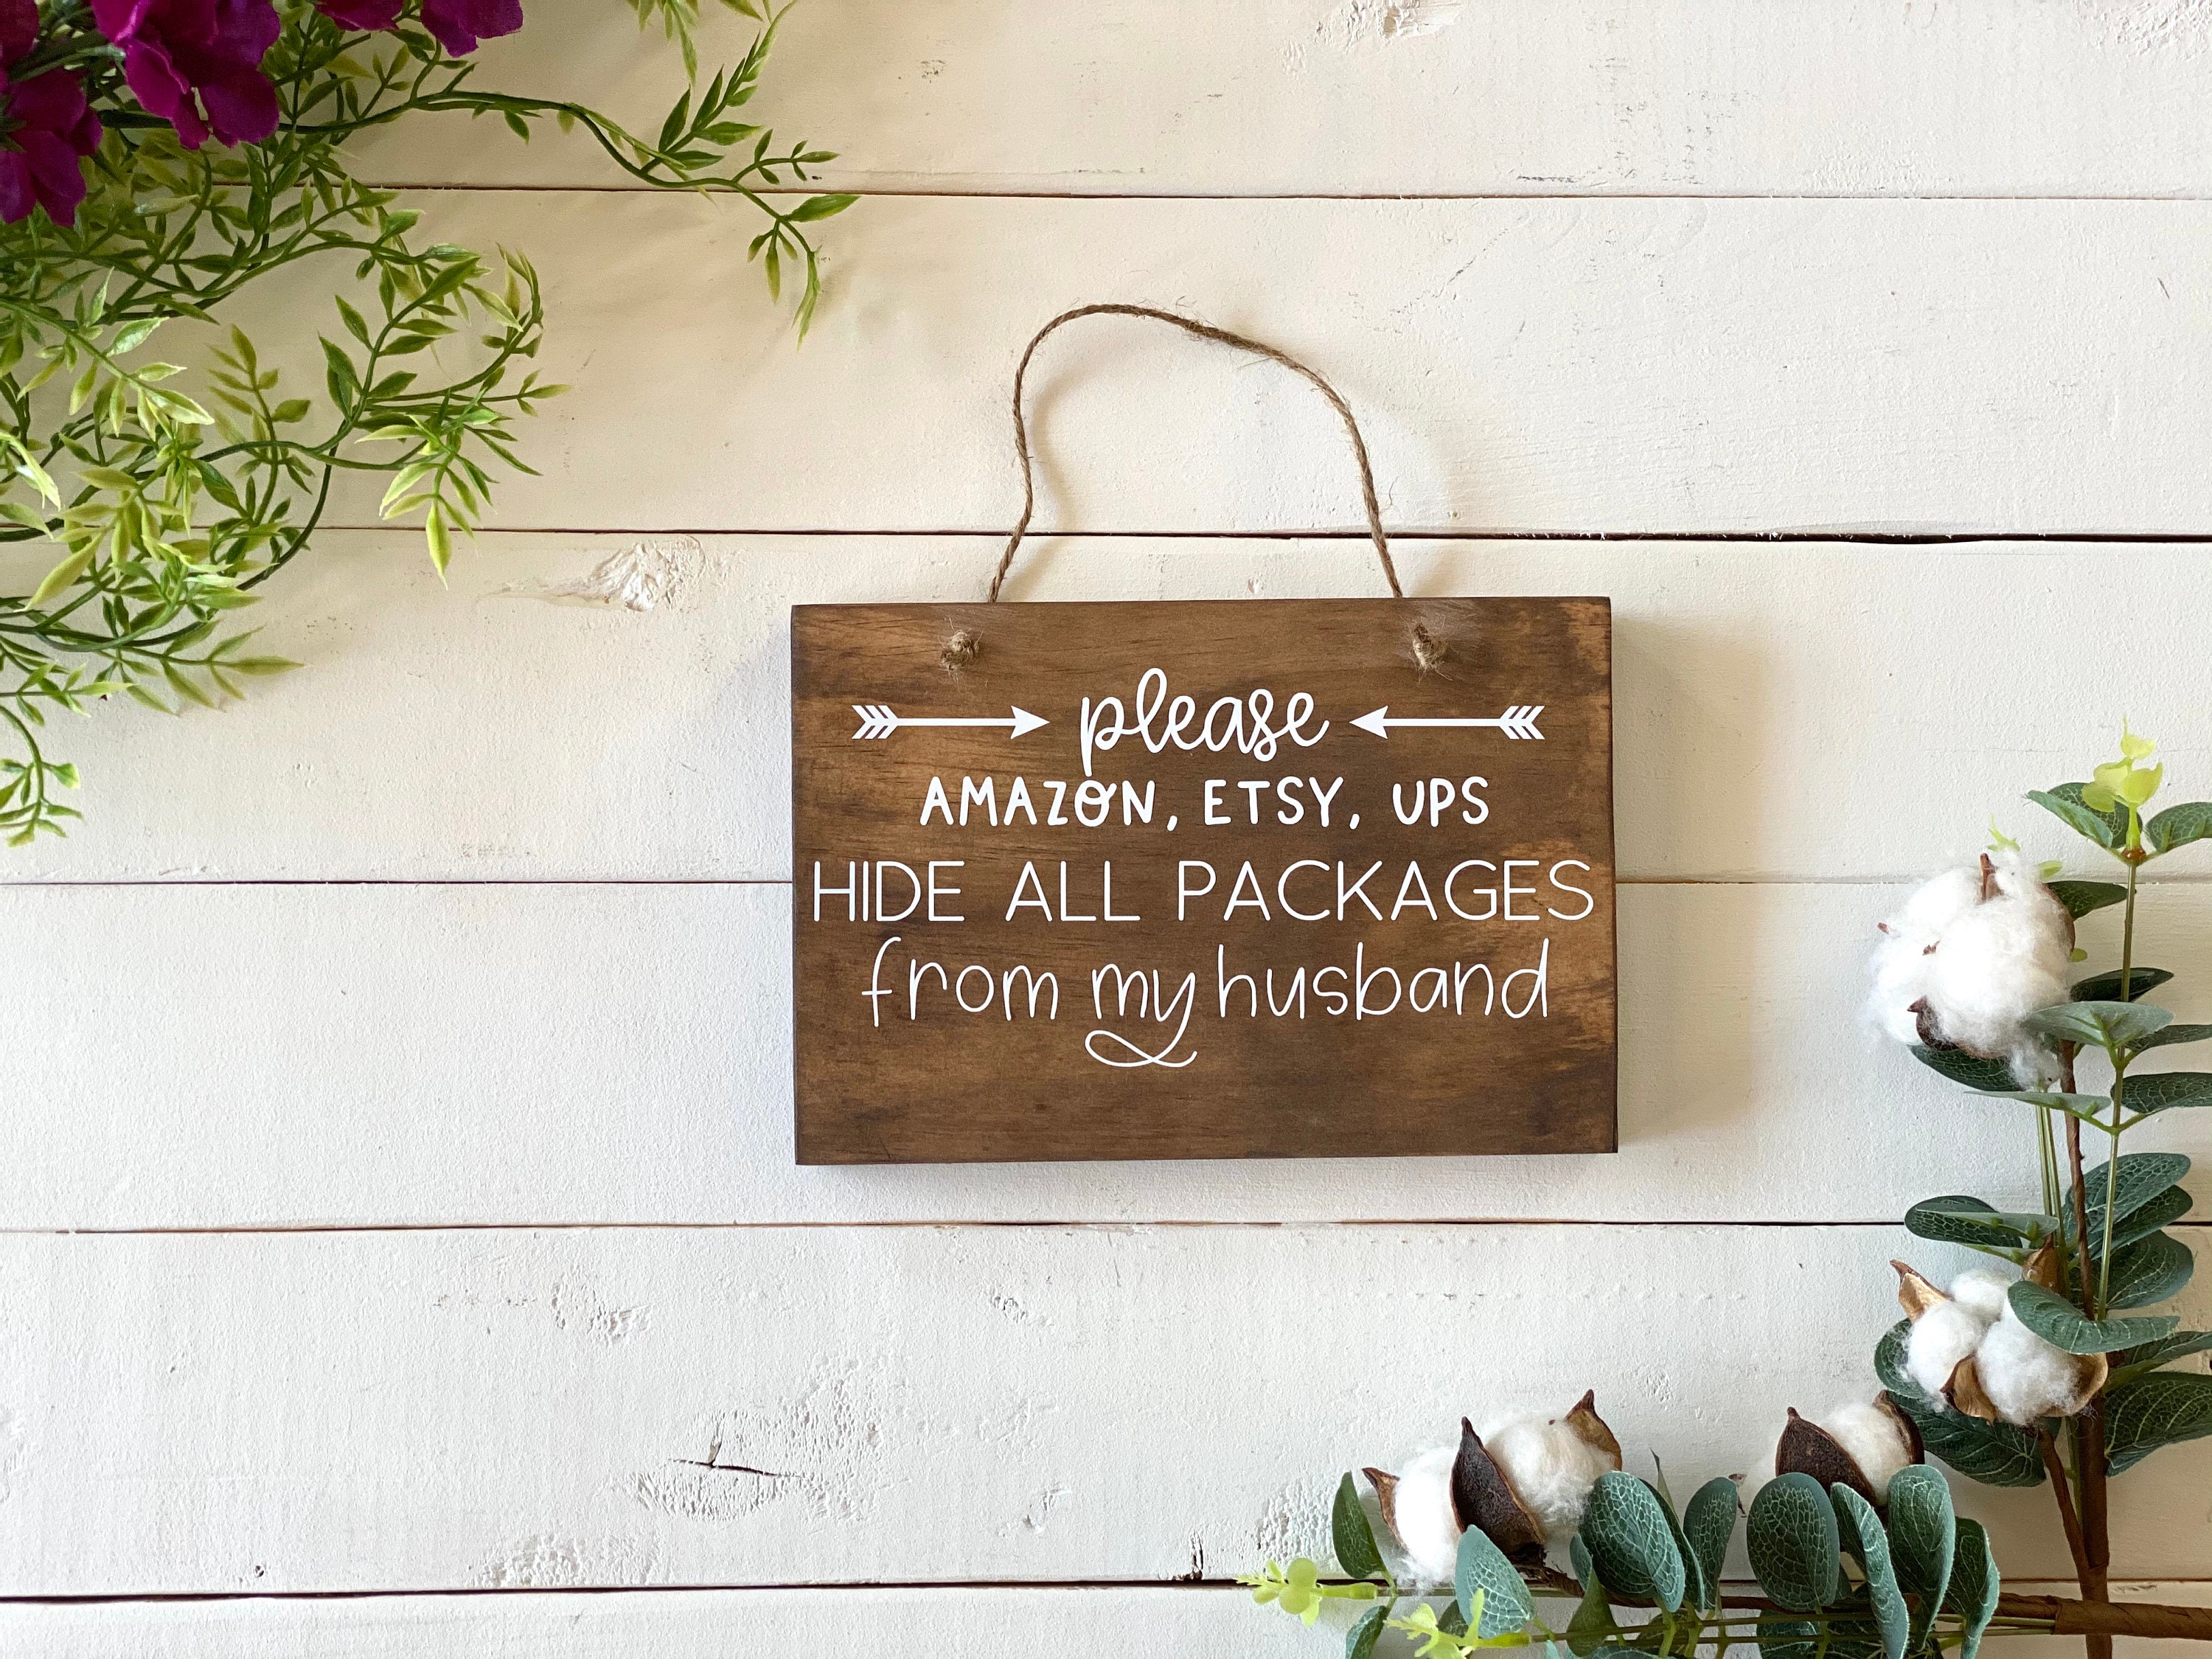 please
AMAZON, ETSY, UPS
HIDE ALL PACKAGES
from my husband